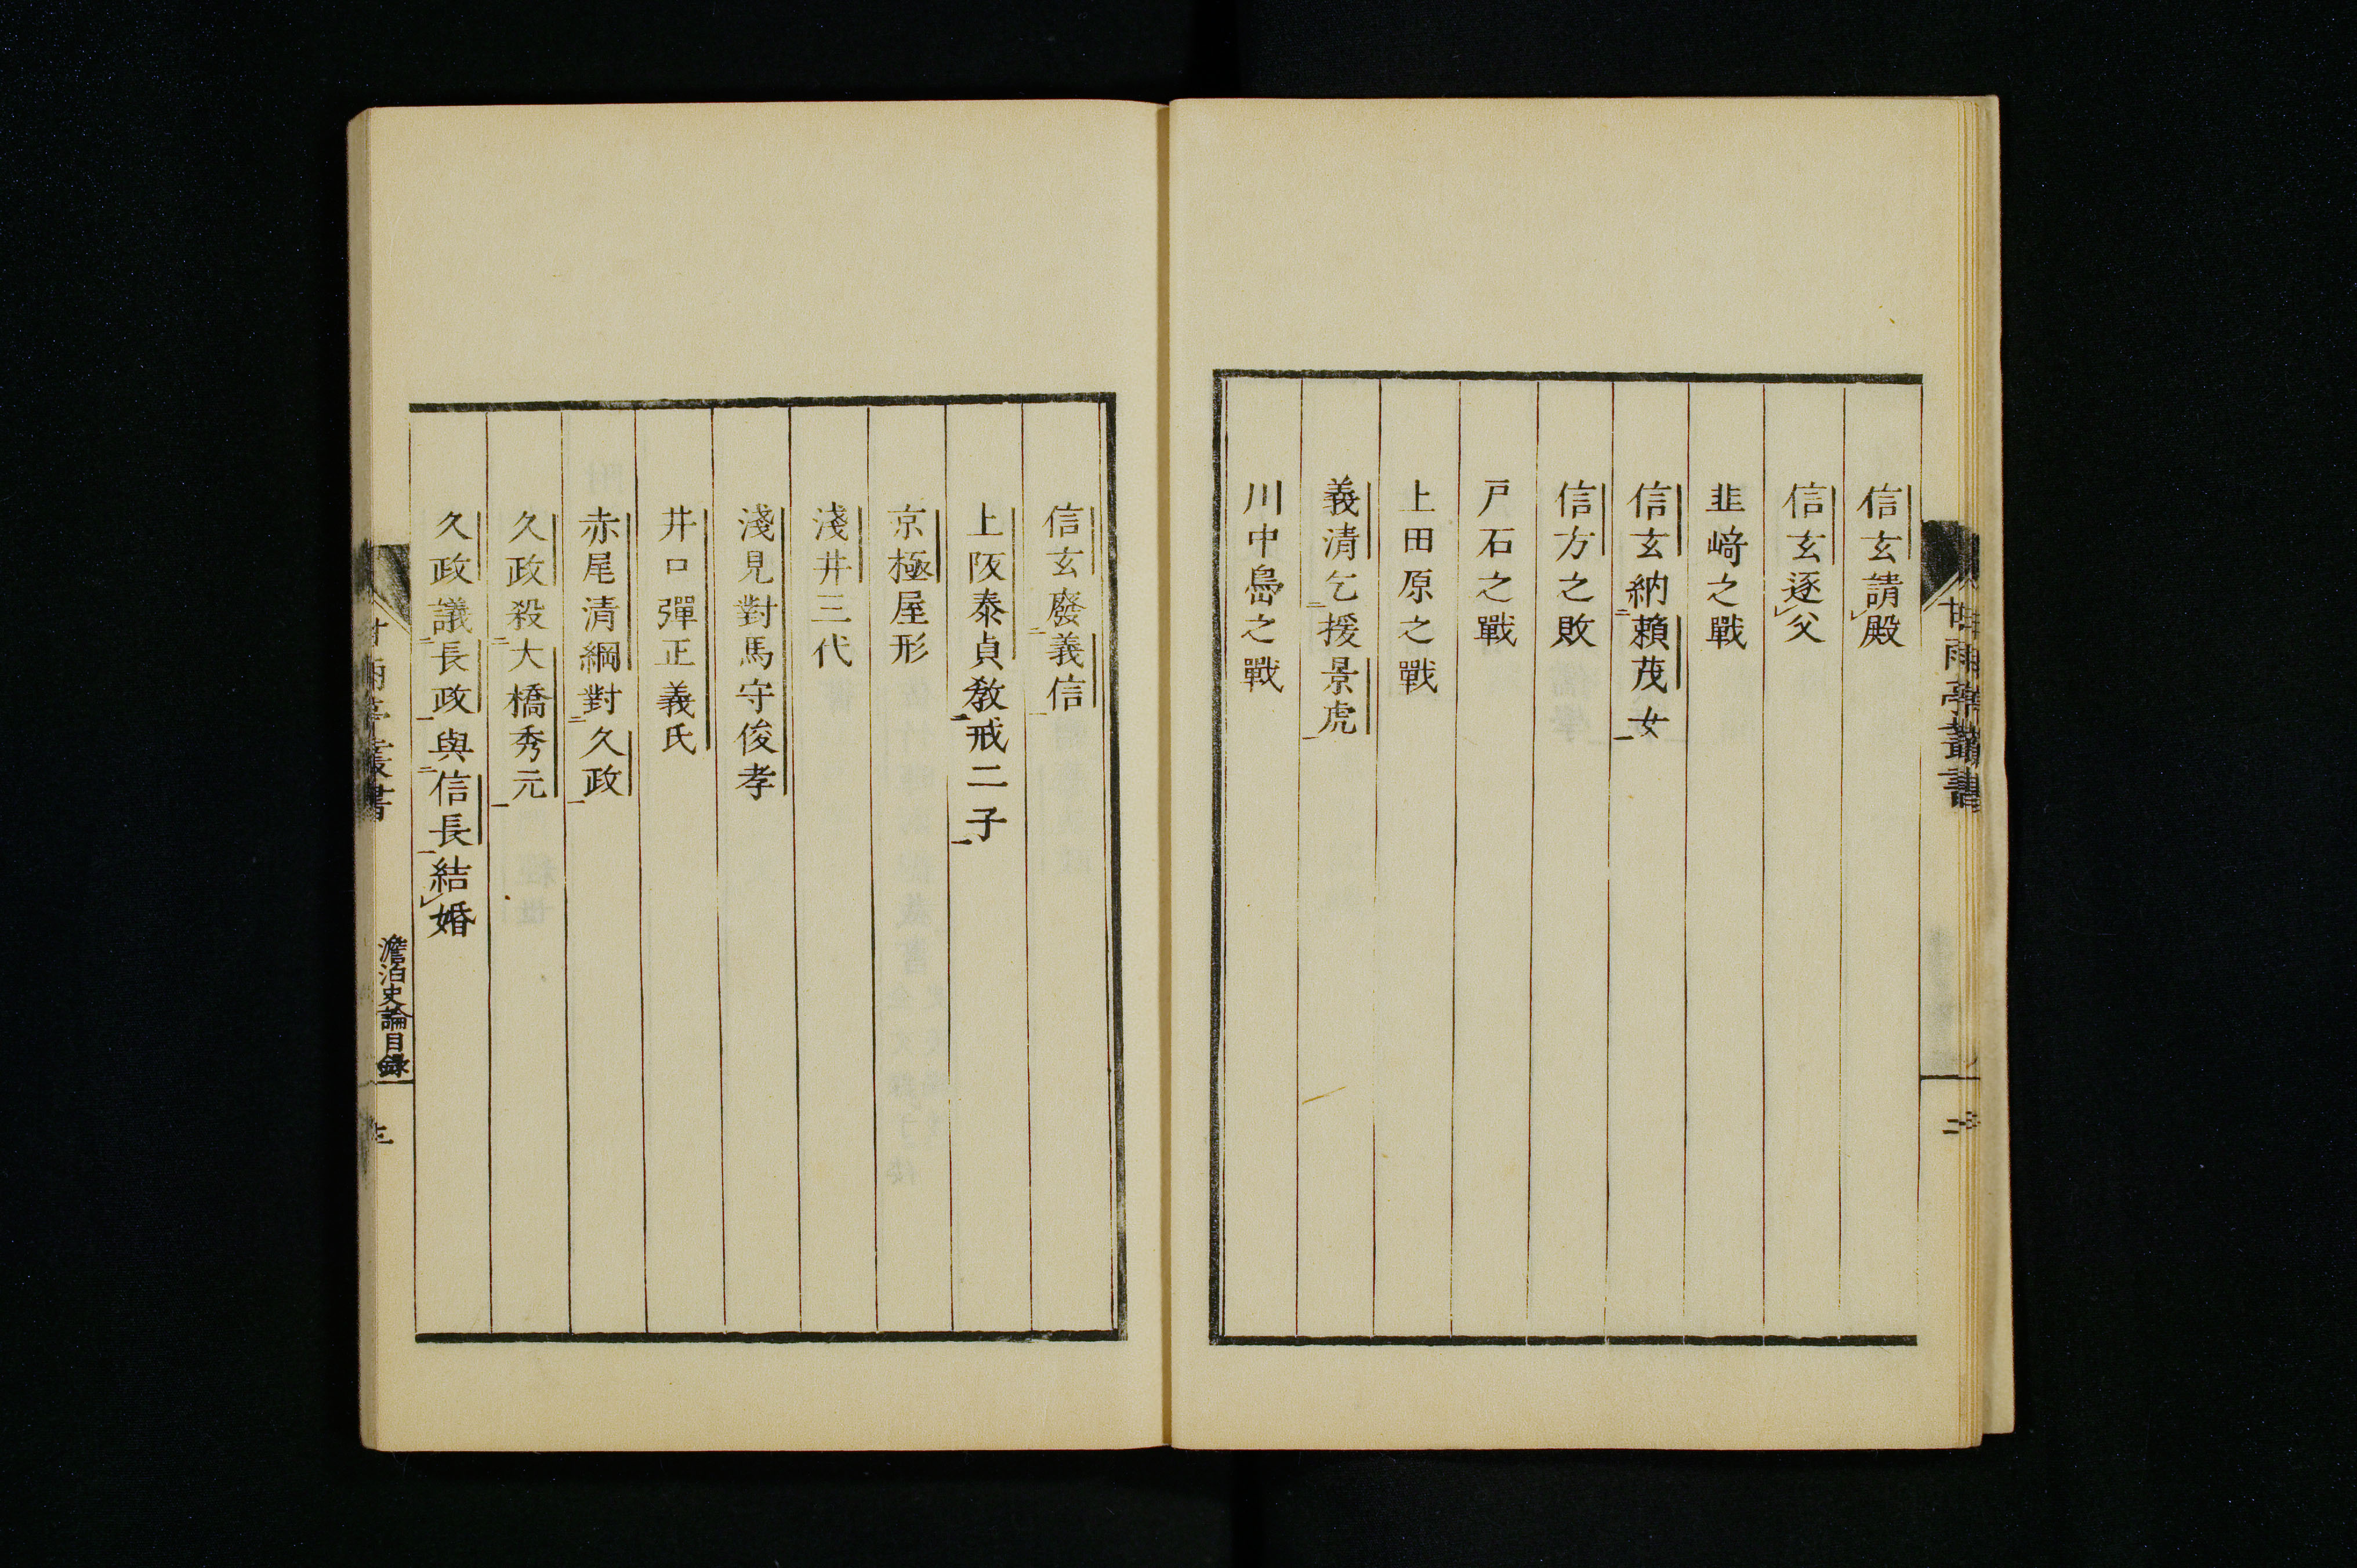 甘雨亭叢書
二
信玄請㆑殿
信玄逐㆑父
韭﨑之戰
信玄納㆓賴茂女㆒
信方之敗
戸石之戰
上田原之戰
義清乞㆓援景虎㆒
川中島之戰
信玄廢㆓義信㆒
上阪泰貞教㆓戒二子㆒
京極屋形
淺井三代
淺見對馬守俊孝
井口彈正義氏
赤尾清綱對㆓久政㆒
久政殺㆓大橋秀元㆒
久政議㆓長政㆒與㆓信長㆒結㆑婚
甘雨亭叢書
澹泊史論目錄